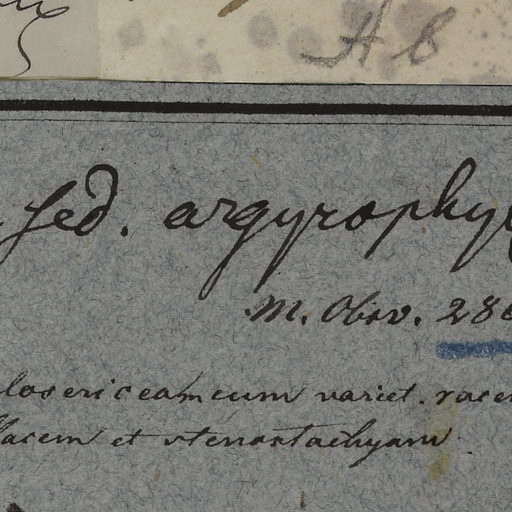 H b
sed. argyrophy
M. Obsv. 286
losericeam cum variet. race
facem et stenostachyam